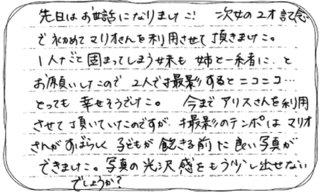 先日はお世話になりました! 次女の2才記念
で初めてマリオさんを利用させて頂きました。
1人だと固まってしまう妹も 姉と一緒に、と
お願いしたので 2人で撮影するとニコニコ…
とっても 幸せそうでした。 今まで アリスさんを利用
させて頂いていたのですが、撮影のテンポは マリオ
さんがすばらしく 子どもが 飽きる前に 良い写真が
できました。写真の光沢感をもう少し出せない
でしょうか?